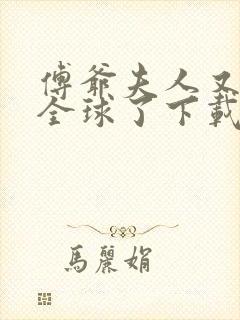 傅爺夫人又
全球了下載
馬麗娟